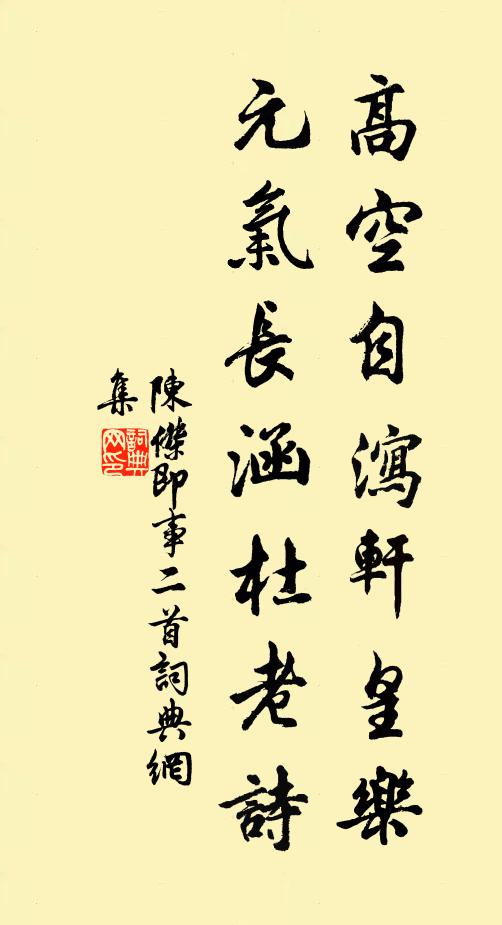 高空自瀉軒皇樂
元氣長涵杜老詩
陳傑即事二首詞典網
集
詞典
网印